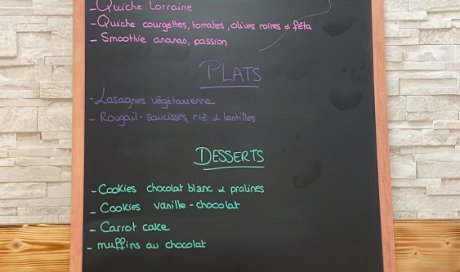 - Quiche Lorraine
- Quiche courgettes, tomates, olives noires & fêta
- Smoothie ananas, passion
PLATS
- Lasagnes végétarienne
- Rougail-saucisses, riz & lentilles
DESSERTS
- Cookies chocolat blanc & pralines
- Cookies vanille-chocolat
- Carrot cake
- muffins au chocolat